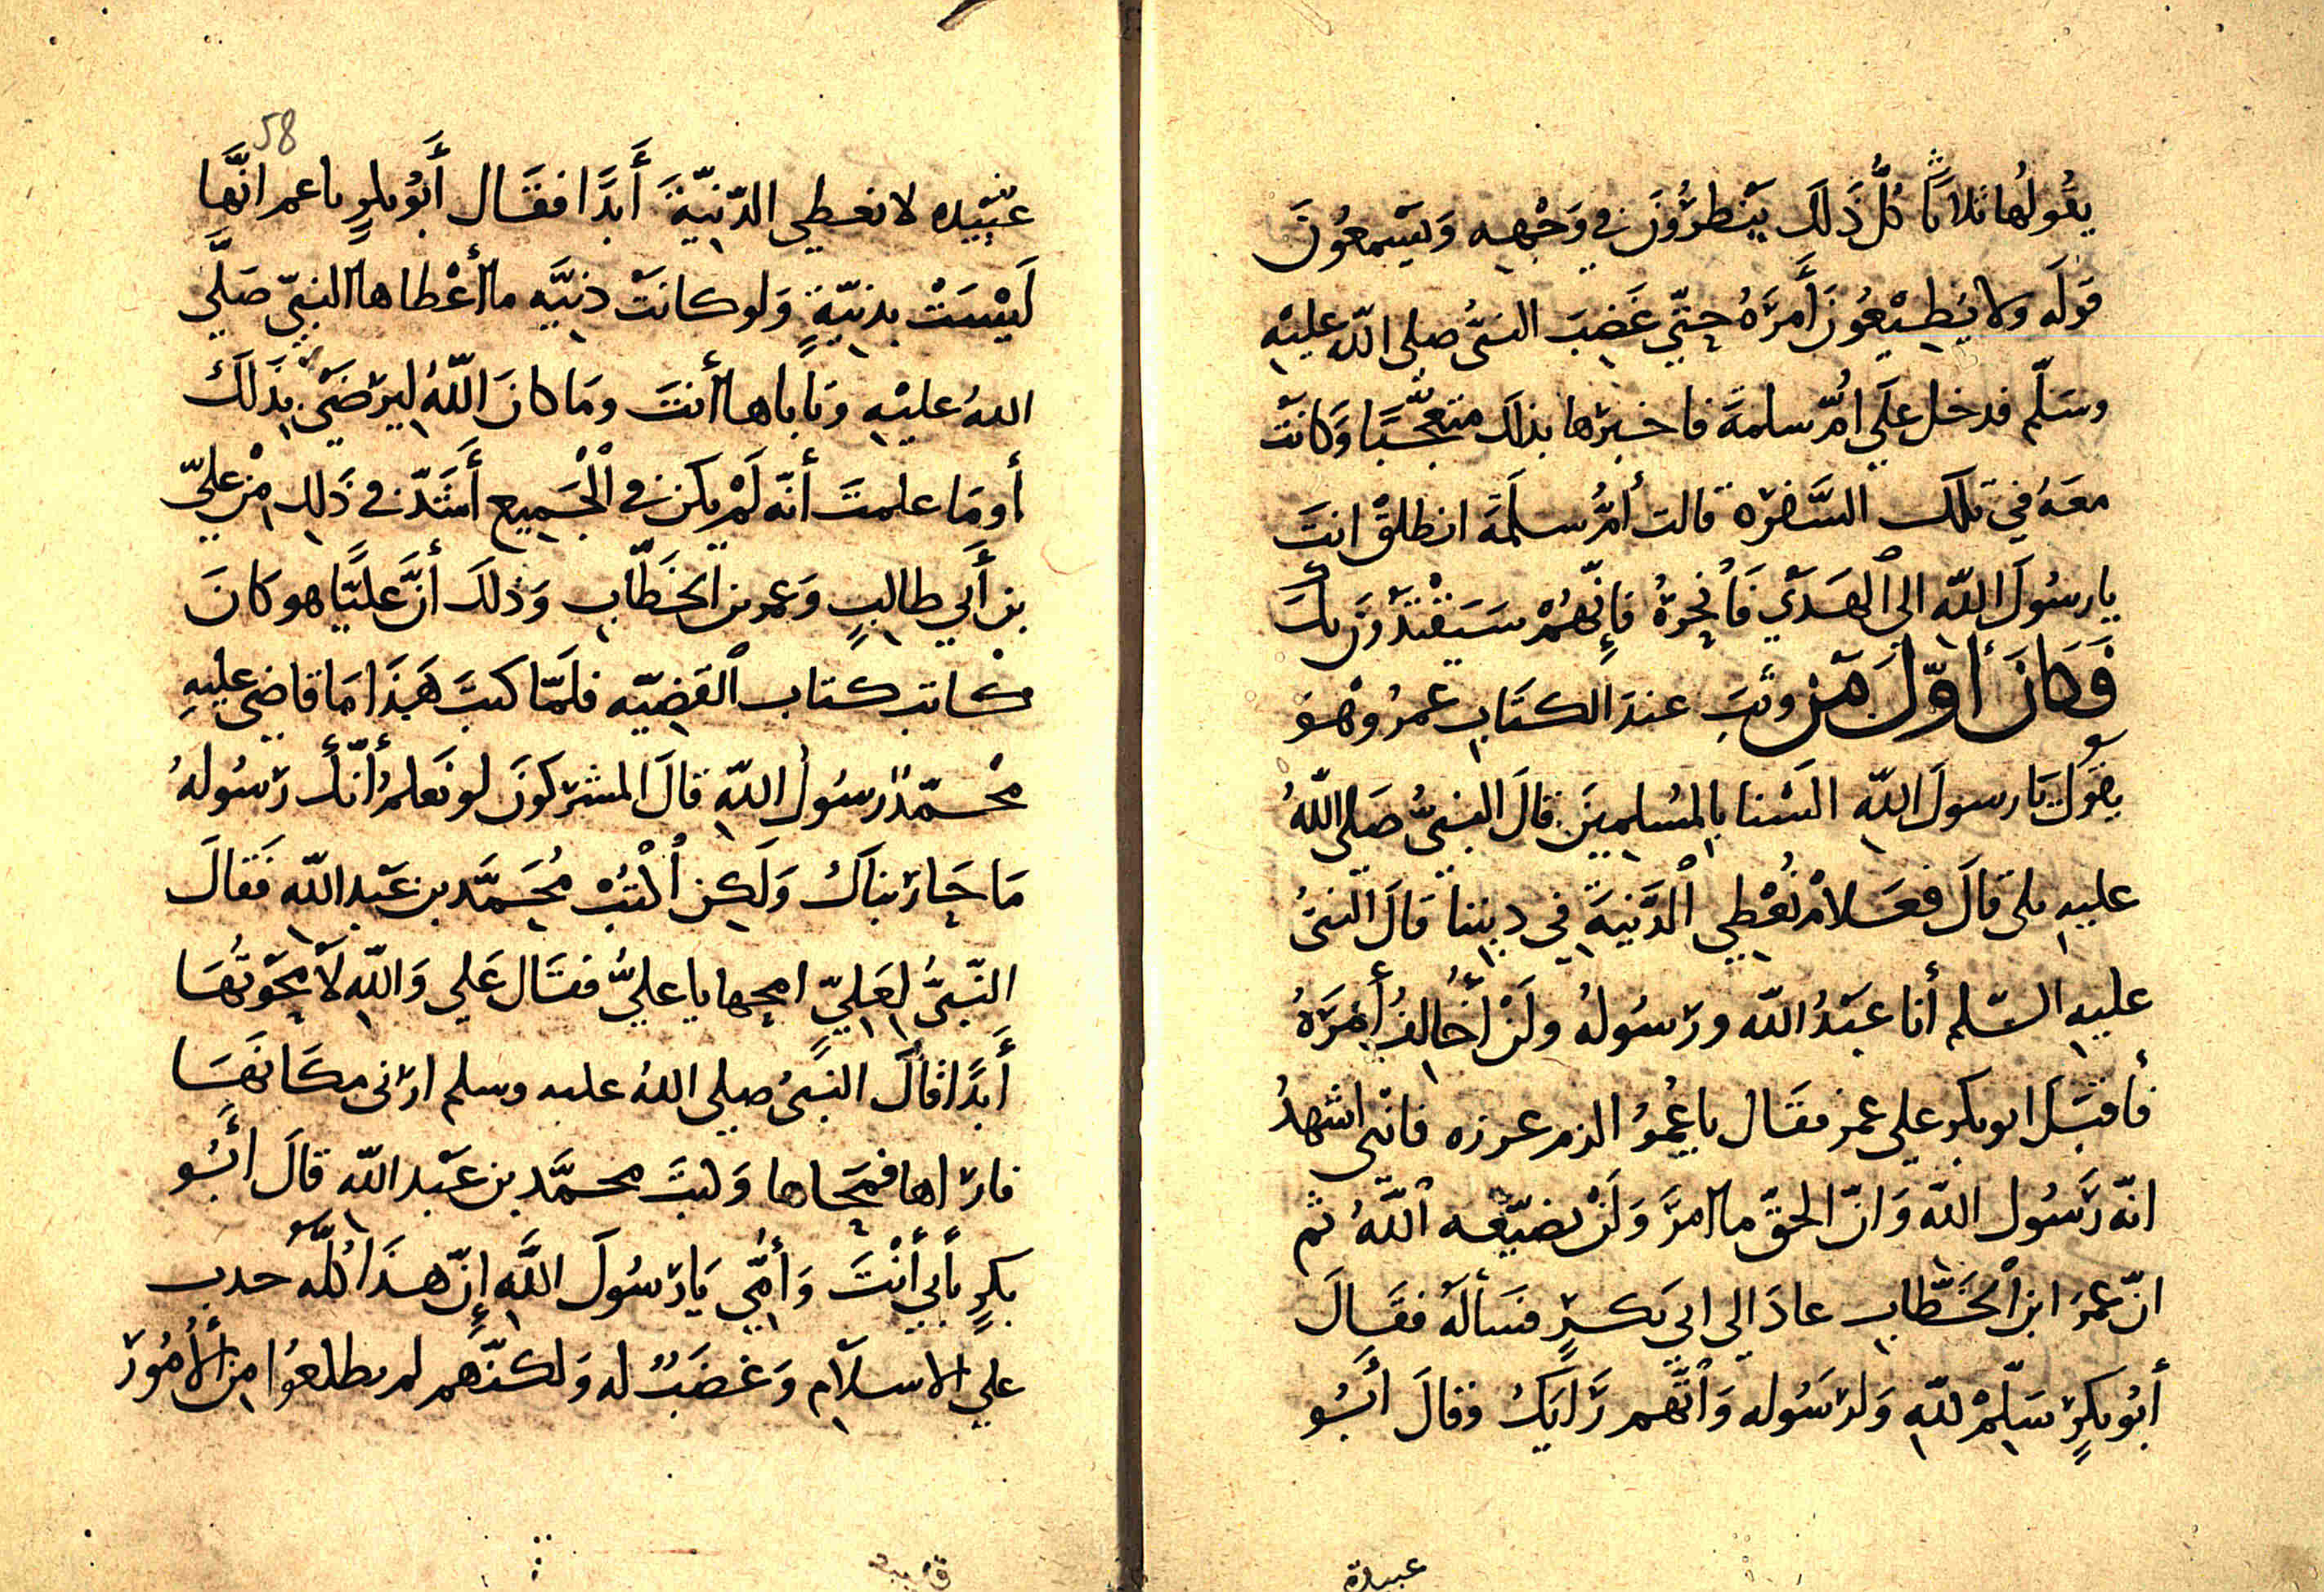 يقولُها ثلاثًا كُلُّ ذَلكَ يَنْظرُونَ في وَجْهِه وَيَسْمعُونَ
قولَه ولا يُطِيْعُونَ أَمرَهُ حتّي غَضِبَ النبيُّ صلى اللّه عليْهِ
وسَلّم فدخل علَي امّ سلمةَ فاخبرَها بذلك متعجّبًا وَكانتْ
معَهُ في تلك السَّفرَه قالت أمُّ سلَمَة انطلقْ انتَ
يارسُولَ اللّه الي الهَدْيِ فَانْحِرهُ فإنّهُمْ سَيَقْتدُونَ بكَ
فَكانَ أوّلَ مَن وثَبَ عندَ الكتَابِ عمرُ وهْوَ
يقول يَا رسولَ اللّه السْنا بالمُسلمينَ قالَ النبيُّ صَلي اللّهُ
عليهِ بلى قالَ فعَلامَ نُعْطِي الدَّنيةَ في ديننا قالَ النبيُ
عليهِ السّلم أنا عبَدُ اللّه ورَسُولهُ ولَنْ أُخالِفُ أمْرَهُ
فأقبَلَ ابوبكر علي عمر فقَال ياعُمرُ الزم غرزه فانّى اشهدُ
انّه رَسُول اللّه وَانّ الحقّ ما امرَ وَلَنْ يضيّعه اللّهُ ثم
انّ عمرَ ابن الْخَطَّابِ عادَ الي ابي بَكرٍ فسَألهُ فقَالَ
أبُوبكرٍ سَلّمْ للّهِ وَلرسُوله وَاتَّهم رَايَكَ وقالَ أبُو
عبيدة
58
عُبَيْده لا نعطي الدّنيّةَ أَبدًا فقَال أَبُوبكرٍ ياعمر انّهَا
لَيْسَتْ بدنيّةٍ وَلو كانَتْ دنيَّه ما أعْطاها النبيّ صَلَّي
اللهُ عليْهِ وَيَاباها أنتَ ومَا كانَ اللّهُ ليرْضَيْ بذَلكَ
أومَا علمتَ أنّه لَمْ يكن في الْجَميع أَشَدّ في ذَلِك مِنْ عليّ
بن أَبي طالبٍ وَعمر بن الخَطّابِ وَذلكَ أنَّ عَليًّا هو كانَ
كاتبَ كتاب القَضيّه فلمّا كتبَ هَذَا مَا قاضي عليهِ
محمّدٌ رسُولُ اللّهِ قالَ المشركونَ لو نَعلمُ أنّكَ رَسُولهُ
مَا حَارَبناكَ وَلكِن اُكتبْ مُحَمَّد بن عَبْدِ اللّهِ فَقالَ
النّبيُّ لِعَليّ امحِها يا عليُّ فقَال عَلي وَاللّهِ لاَ مَحوتُهَا
أَبَدًا قالَ النبَيُ صلي اللهُ عليه وسلم ارَنى مكَانَهَا
فارَاها فمَحاها وَكتبَ محمَّد بن عَبْد اللّه قالَ أَبُو
بكرٍ بأَبي أَنْتَ وَأُمّي يَارَسُولَ اللَّهِ إِنّ هَذَا لله حدب
علي الاسلام وَغضَبٌ له وَلكنَّهم لم يطلعُوا مِن الأُمُورَ